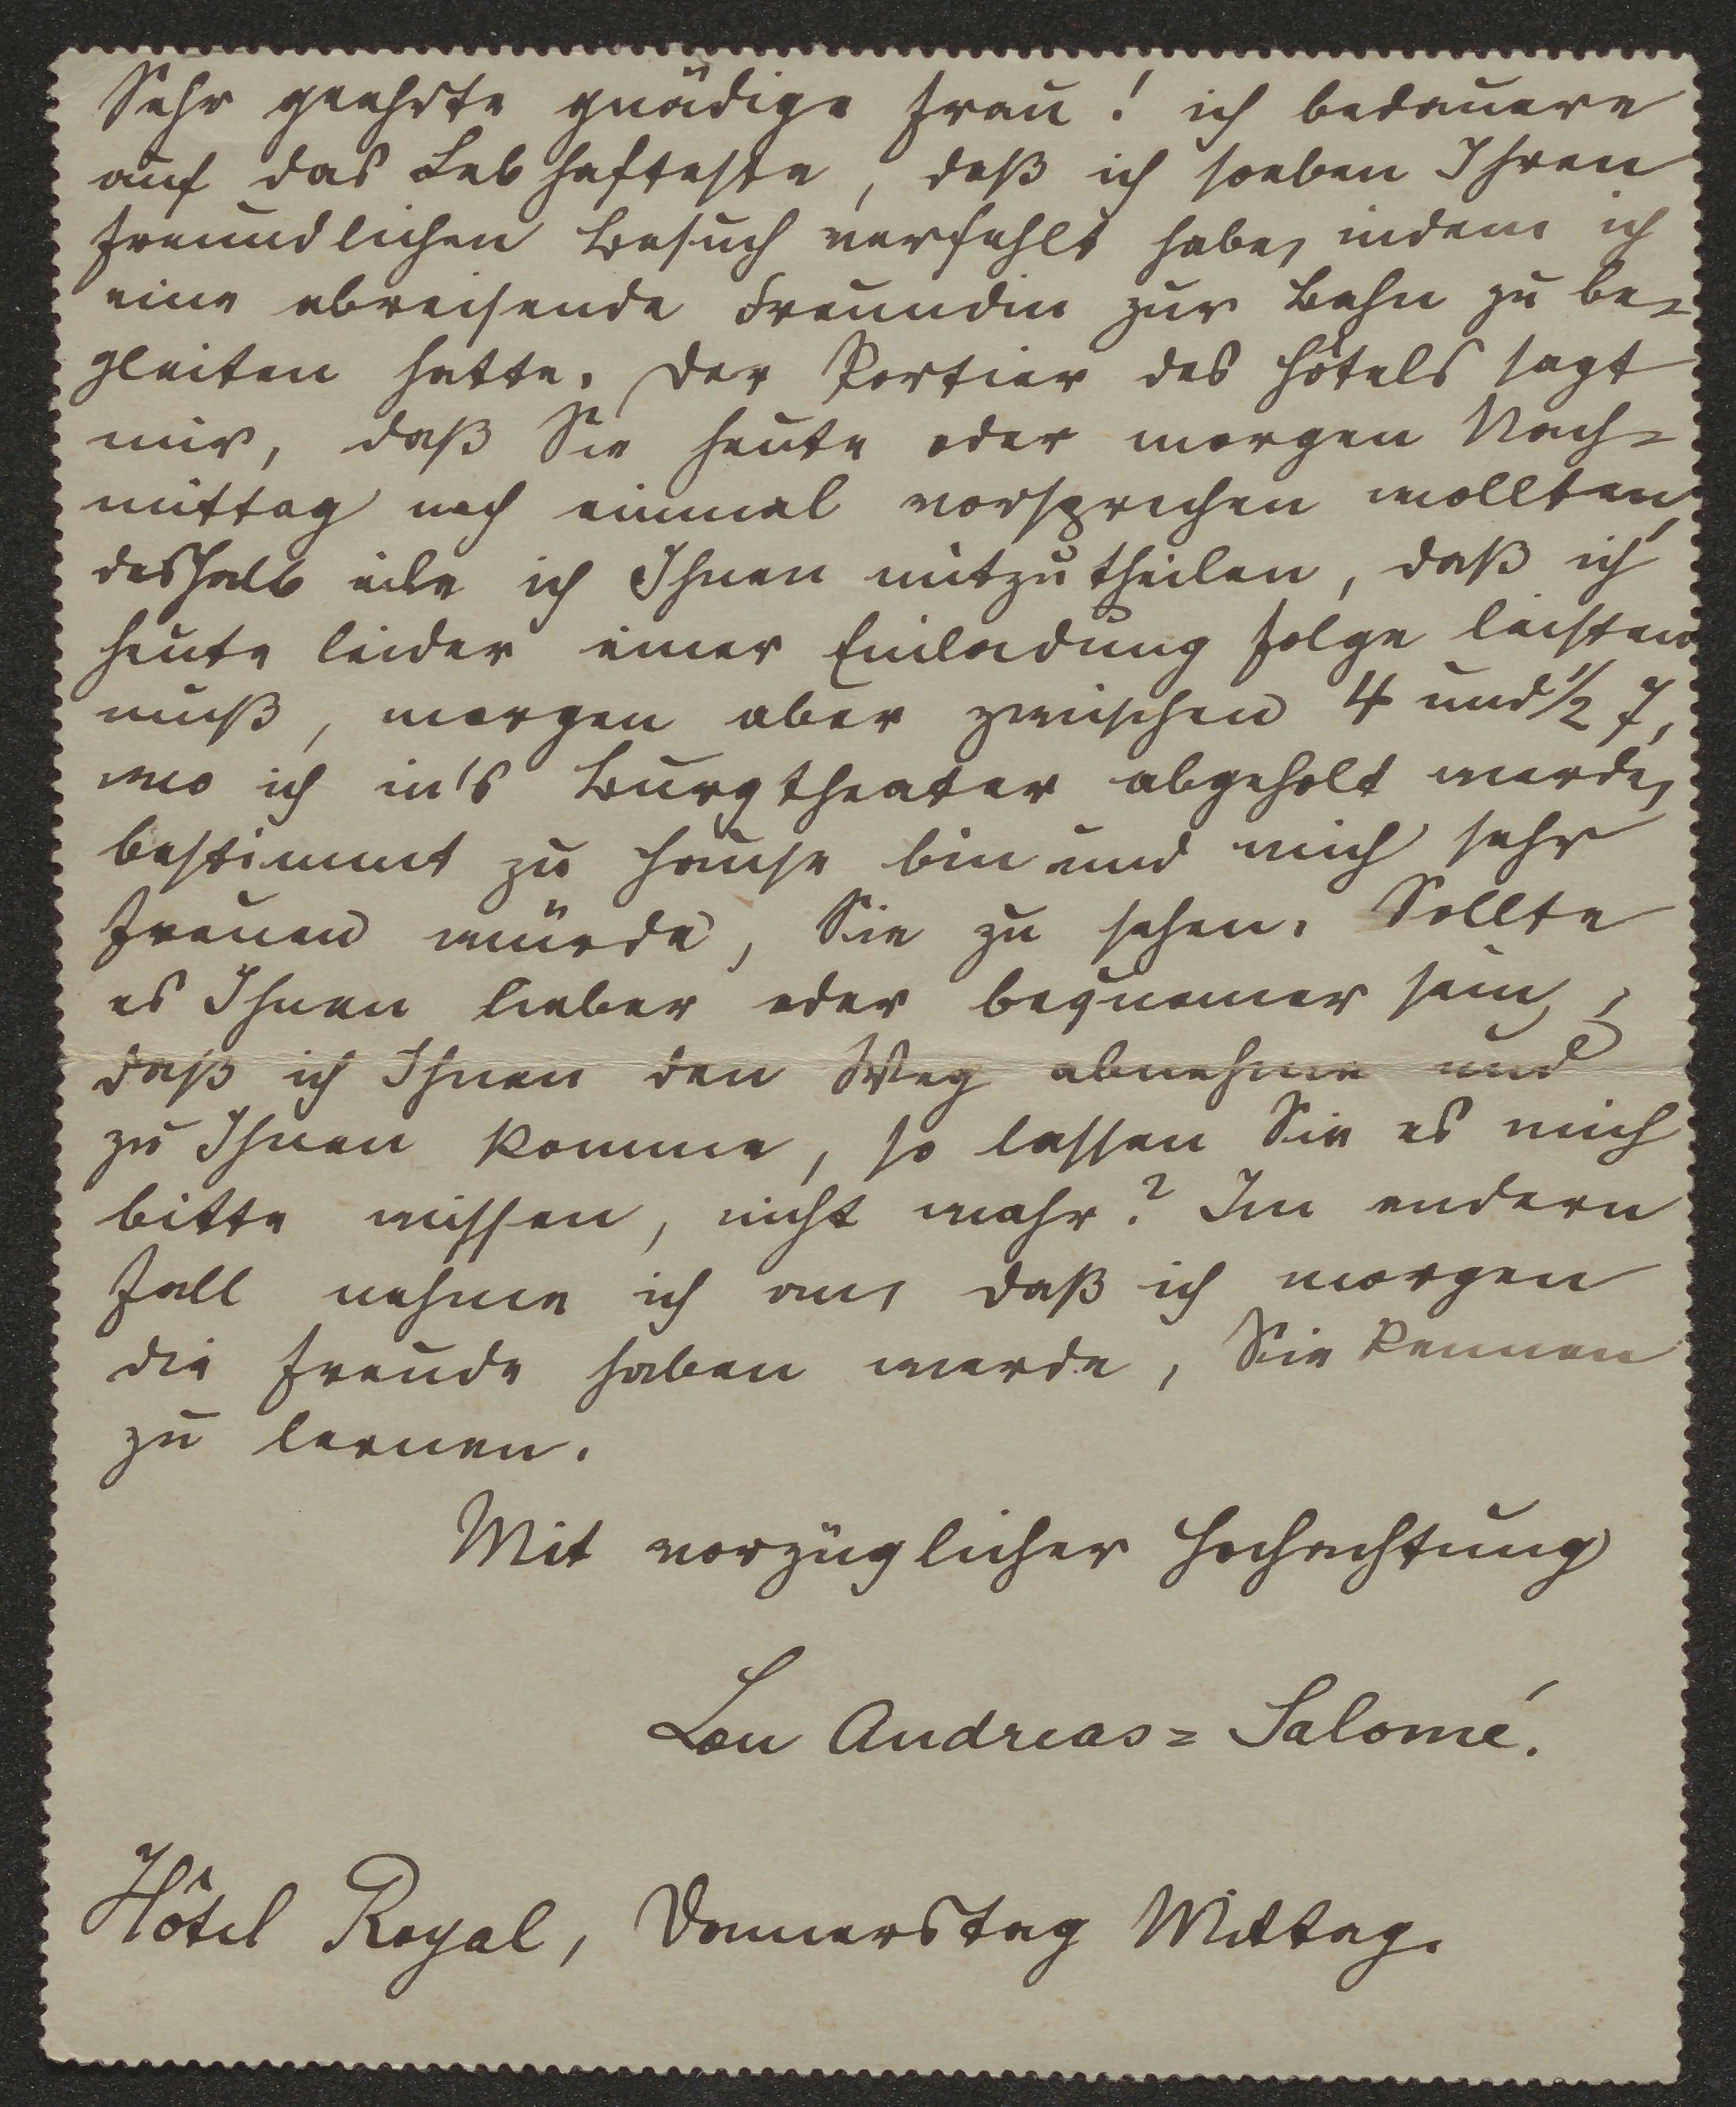 Sehr geehrte gnädige Frau! ich bedauere
auf das Lebhafteste, daß ich soeben Ihren
freundlichen Besuch verfehlt habe, indem ich
eine abreisende Freundin zur Bahn zu be-
gleiten hatte. Der Portier des Hôtels sagt
mir, daß Sie heute oder morgen Nach-
mittag noch einmal vorsprechen wollten,
deshalb eile ich Ihnen mitzutheilen, daß ich
heute leider einer Einladung Folge leisten
muß, morgen aber zwischen 4 und ½ 7,
wo ich in's Burgtheater abgeholt werde,
bestimmt zu Hause bin und mich sehr
freuen würde, Sie zu sehen. Sollte
es Ihnen lieber oder bequemer sein,
daß ich Ihnen den Weg abnehme und
zu Ihnen komme, so lassen Sie es mich
bitte wissen, nicht wahr? Im andern
Fall nehme ich an, daß ich morgen
die Freude haben werde, Sie kennen
zu lernen.
Mit vorzüglicher Hochachtung
Lou Andreas-Salomé.
Hôtel Royal, Donnerstag Mittag.